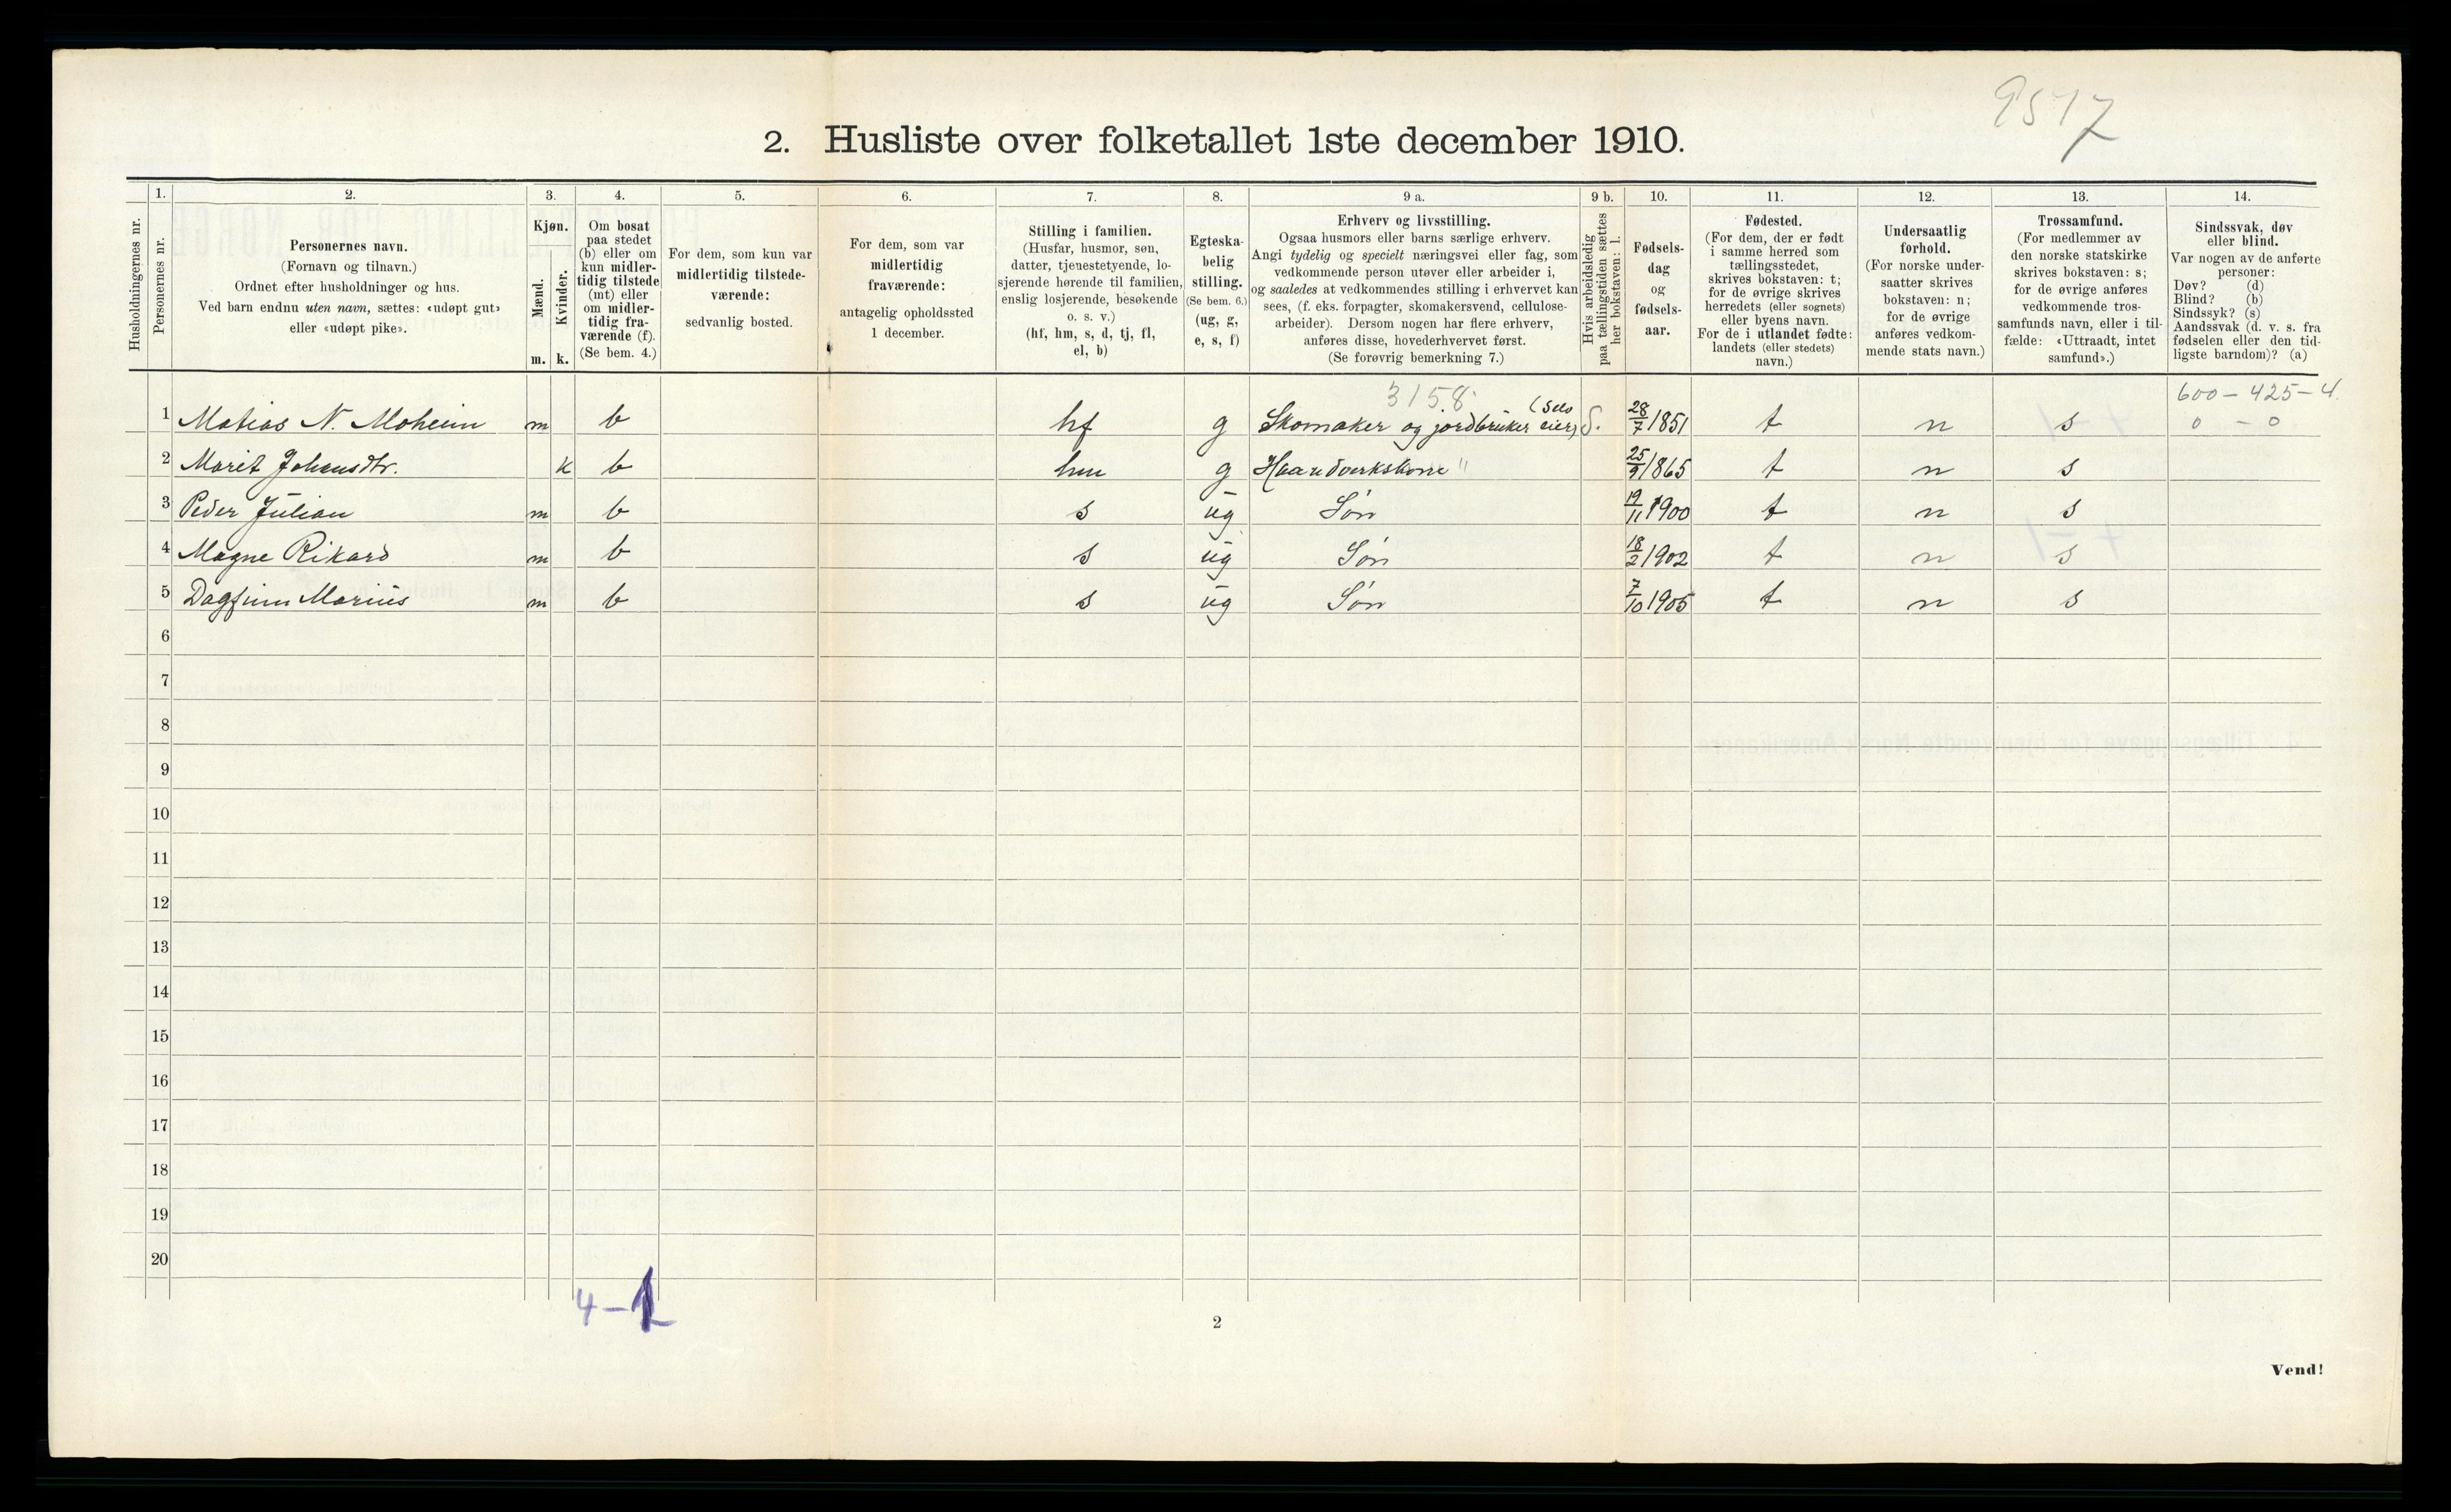 9517
2. Husliste over folketallet 1ste december 1910.
Husholdningernes nr.
1.
Personernes nr.
2.
Personernes navn.
(Fornavn og tilnavn.)
Ordnet efter husholdninger og hus.
Ved barn endnu uten navn, sættes: «udøpt gut»
eller «udøpt pike».
3.
Kjøn.
Mænd.
Kvinder.
m. k.
4.
Om bosat
paa stedet
(b) eller om
kun midler-
tidig tilstede
(mt) eller
om midler-
tidig fra-
værende (f).
(Se bem. 4.)
5.
For dem, som kun var
midlertidig tilstede-
værende:
sedvanlig bosted.
6.
For dem, som var
midlertidig
fraværende:
antagelig opholdssted
1 december.
7.
Stilling i familien.
(Husfar, husmor, søn,
datter, tjenestetyende, lo-
sjerende hørende til familien,
enslig losjerende, besøkende
o. s. v.)
(hf, hm, s, d, tj, fl,
el, b)
8.
Egteska-
belig
stilling.
(Se bem. 6.)
(ug, g,
e, s, f)
9 a.
Erhverv og livsstilling.
Ogsaa husmors eller barns særlige erhverv.
Angi tydelig og specielt næringsvei eller fag, som
vedkommende person utøver eller arbeider i,
og saaledes at vedkommendes stilling i erhvervet kan
sees, (f. eks. forpagter, skomakersvend, cellulose-
arbeider). Dersom nogen har flere erhverv,
anføres disse, hovederhvervet først.
(Se forøvrig bemerkning 7.)
9 b.
Hvis arbeidsledig
paa tællingstiden sættes
her bokstaven: l.
10.
Fødsels-
dag
og
fødsels-
aar.
11.
Fødested.
(For dem, der er født
i samme herred som
tællingsstedet,
skrives bokstaven: t;
for de øvrige skrives
herredets (eller sognets)
eller byens navn.
For de i utlandet fødte:
landets (eller stedets)
navn.)
12.
Undersaatlig
forhold.
(For norske under-
saatter skrives
bokstaven: n;
for de øvrige
anføres vedkom-
mende stats navn.)
13.
Trossamfund.
(For medlemmer av
den norske statskirke
skrives bokstaven: s;
for de øvrige anføres
vedkommende tros-
samfunds navn, eller i til-
fælde: «Uttraadt, intet
samfund».)
14.
Sindssvak, døv
eller blind.
Var nogen av de anførte
personer:
Døv? (d)
Blind? (b)
Sindssyk? (s)
Aandssvak (d. v. s. fra
fødselen eller den tid-
ligste barndom)? (a)
3158. 600 – 425 – 4.
1 Matias N. Moheim m b hf g Skomaker og jordbruker (Selveier) S. 28/7 1851 t n s 0 – 0
2 Marit Johansdtr. k b hm g Haandverkskone " 25/9 1865 t n s
3 Peder Julian m b s ug Søn 19/11 1900 t n s
4 Magne Rikard m b s ug Søn 18/2 1902 t n s
5 Dagfinn Marius m b s ug Søn 7/10 1905 t n s
6
7
8
9
10
11
12
13
14
15
16
17
18
19
20
4 – 1
2
Vend!